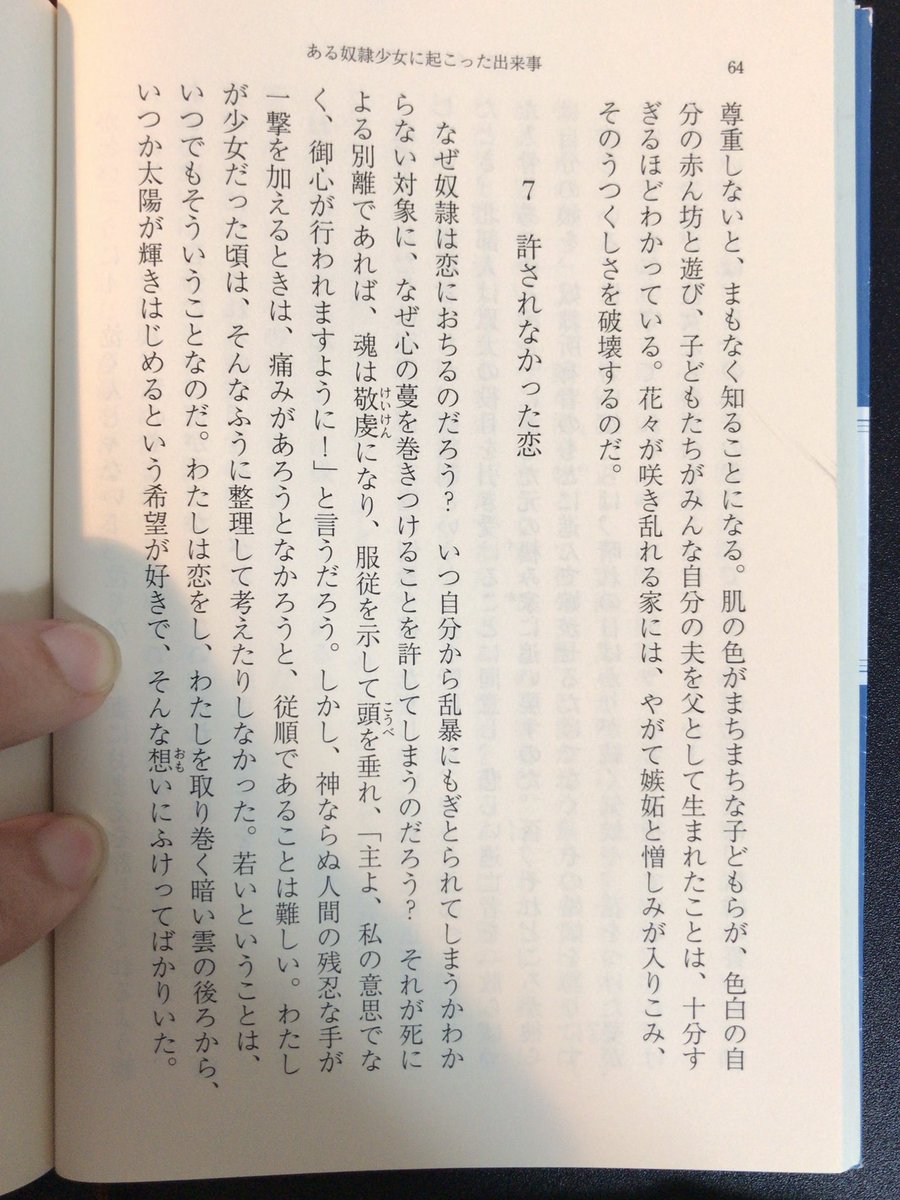 ある奴隷少女に起こった出来事
64
尊重しないと、まもなく知ることになる。肌の色がまちまちな子どもらが、色白の自
分の赤ん坊と遊び、子どもたちがみんな自分の夫を父として生まれたことは、十分す
ぎるほどわかっている。花々が咲き乱れる家には、やがて嫉妬と憎しみが入りこみ、
そのうつくしさを破壊するのだ。
7 許されなかった恋
なぜ奴隷は恋におちるのだろう? いつ自分から乱暴にもぎとられてしまうかわか
らない対象に、なぜ心の蔓を巻きつけることを許してしまうのだろう? それが死に
よる別離であれば、魂は敬虔けいけんになり、服従を示して頭こうべを垂れ、「主よ、私の意思でな
く、御心が行われますように!」と言うだろう。しかし、神ならぬ人間の残忍な手が
一撃を加えるときは、痛みがあろうとなかろうと、従順であることは難しい。わたし
が少女だった頃は、そんなふうに整理して考えたりしなかった。若いということは、
いつでもそういうことなのだ。わたしは恋をし、わたしを取り巻く暗い雲の後ろから、
いつか太陽が輝きはじめるという希望が好きで、そんな想おもいにふけってばかりいた。